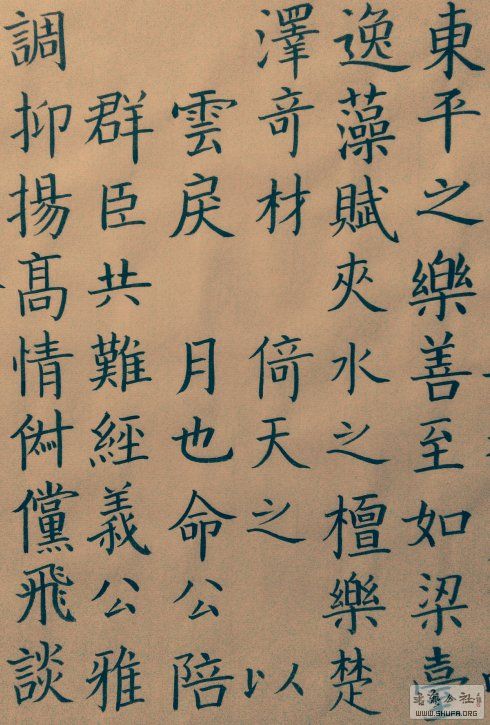 東平之樂善至如梁
逸藻賦夾水之檀樂楚
澤竒材 倚天之 以
雲戾 月也命公陪
群臣共難經義公雅
調抑揚髙情儻飛談
WWW.SHUFA.ORG